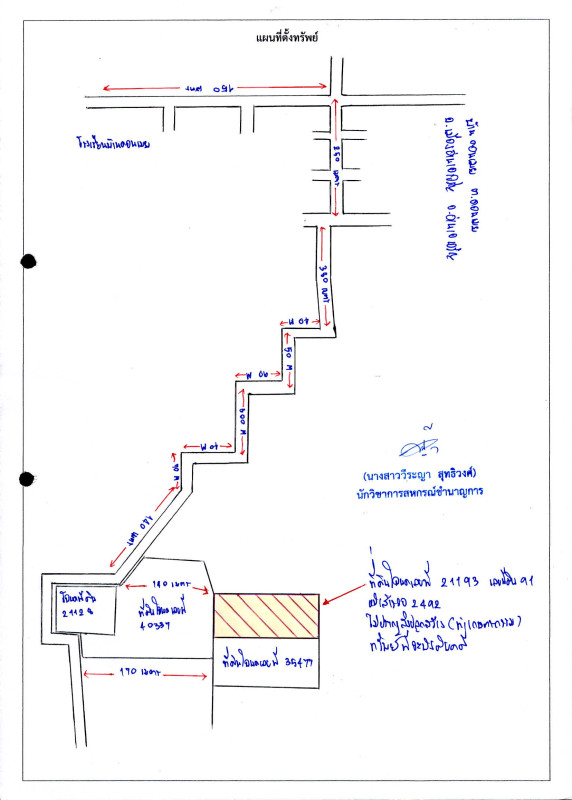 แผนที่ตั้งทรัพย์
150 เมตร
โรงเรียนบ้านดอนเมย
350 เมตร
บ้านดอนเมย ต.ดอนเมย
อ.เมืองอำนาจเจริญ จ.อำนาจเจริญ
380 เมตร
40 M
50 M
90 M
600 M
40 M
(นางสาววีระญา สุทธิวงศ์)
นักวิชาการสหกรณ์ชำนาญการ
140 เมตร
ที่ดินโฉนดเลขที่
40337
ที่ดินโฉนดเลขที่ 21193 เลขที่ดิน 91
2492
ไม่ปรากฏสิ่งปลูกสร้าง (ทำเกษตรกรรม)
ที่ดินโฉนดเลขที่ 35477
170 เมตร